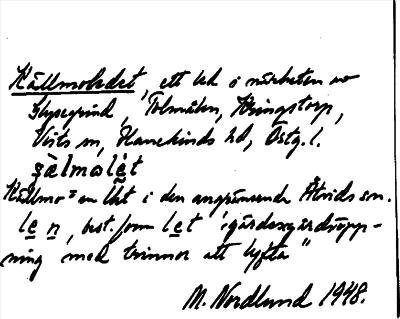 Källmoledet, ett led i närheten av
Glysegrind, Tolmålen, Kringstorp,
Viste sn, Hanekinds hd, Östg. l.
sälmolèt
Källmo = en lht i den angränsande Åtvids sn.
len, best. form let "gärdesgårdsöpp-
ning med trinnor att lyfta"
M. Nordlund 1948.